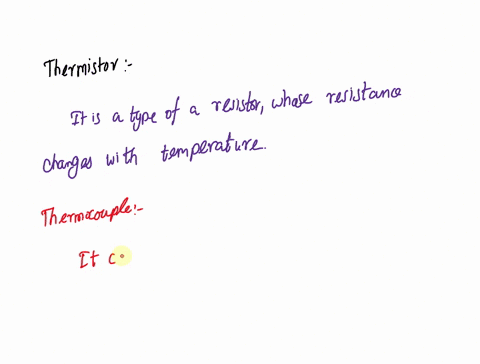 Thermistor:-
It is a type of a resistor, whose resistance
changes with temperature.
Thermocouple:-
It c